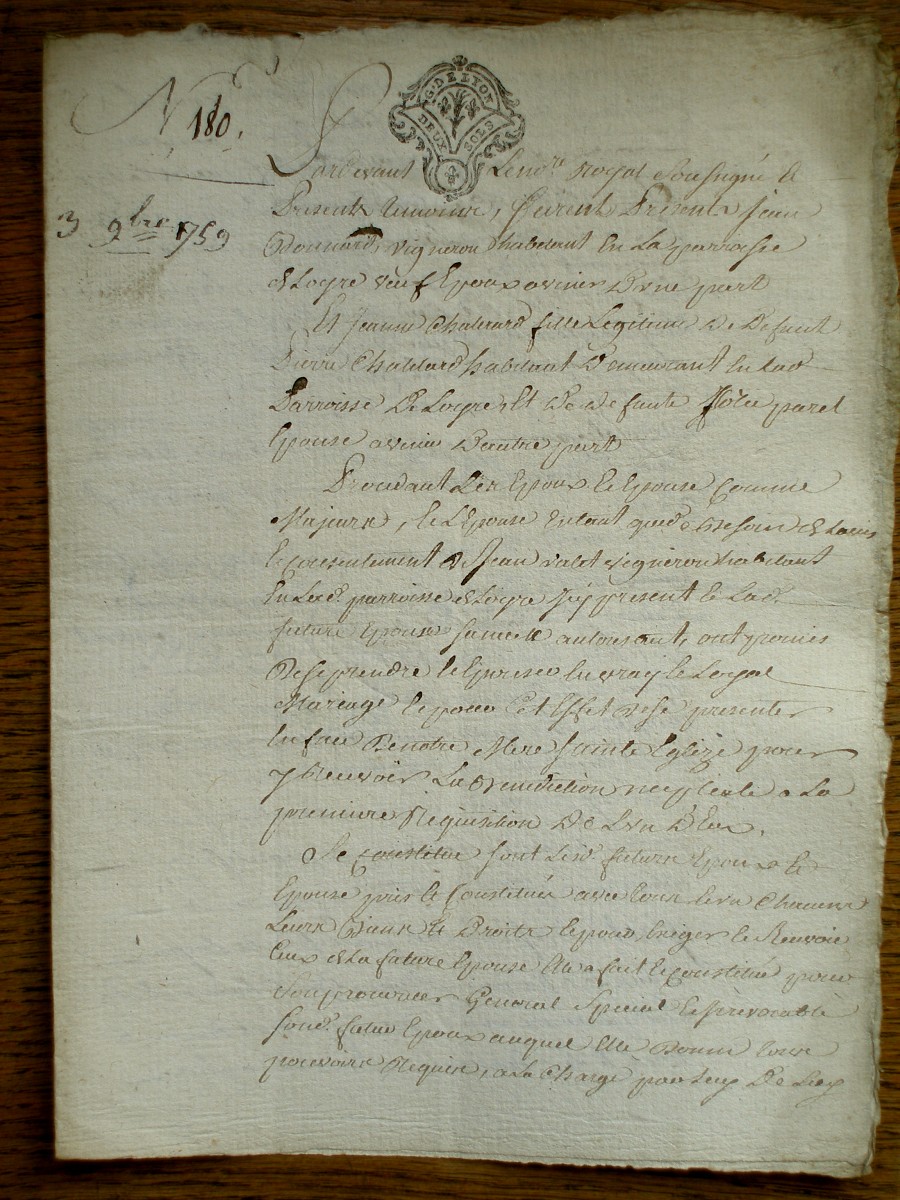 N 180.
G. DE LYON
DEUX SOLS
3 9bre 1759
Pardevant Le no.re Royal Soussigné Et
Presents temoins, furent Presents Jean
vigneron habitant En La parroisse
de Loyre veuf Epoux avenir D'une part
Et Jeanne Chabard fille Legitime De Defunt
Pierre Chabard habitant Demeurant En Lad.
Parroisse De Loyre, Et De Defunte pareil
Epouse avenir D'autre part
Procedant Les Epoux Et Epouse Comme
Majeurs, Et L'Epouse Entant que de Besoin de L'avis
Et consentement De Jean valet vigneron habitant
En Lad. parroisse de Loyre Icy present Et Lad.
future Epouse autorisant, ont promis
De se prendre Et Epouser En vray Et Loyal
Mariage Et pour Cet Effet De se presenter
En face De notre Mere Sainte Eglize pour
y Recevoir La Benediction nuptiale a La
premiere Requisition De L'un D'Eux,
Se constitue sont Lesd. futurs Epoux Et
Epouse pris Et Constitués avec tous Et un Chacuns
Leurs Biens Et Droits Et pour Exiger Et Recevoir
Ceux de La future Epouse Elle a fait Et Constitué pour
Son procureur General Special Et Irrevocable
Sond. futur Epoux auquel Elle Donne tous
pouvoirs Requis, a La Charge par Luy De